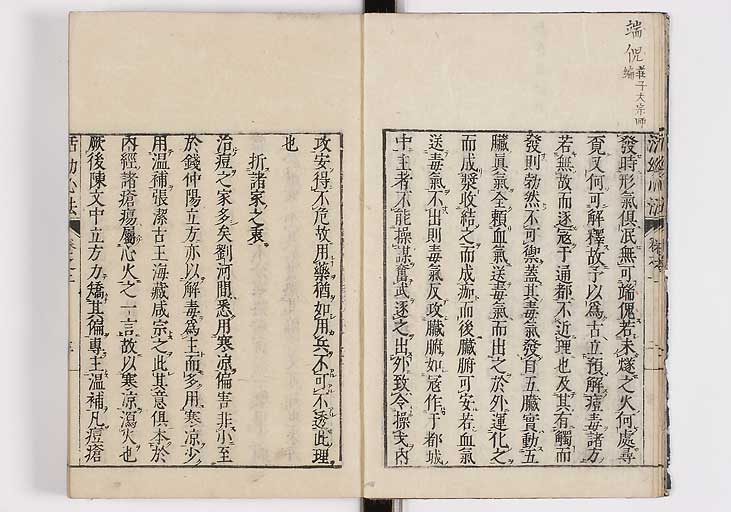 端倪 莊子大宗師
編
發時形氣俱泯無可端倪若未燧之火何處尋
覓又何可解釋故予以為古立預解痘毒諸方
若無故而逐寇于通都不近理也及其有觸而
發則勃然不可禦蓋其毒氣發自五臟實動五
臟真氣全賴血氣送毒氣而出之於外運化之
而成漿收結之而成痂而後臟腑可安若血氣
送毒氣不出則毒氣反攻臟腑如寇作于都城
中主者不能操謀奮武逐之出外致令操戈內
攻安得不危故用藥猶如用兵不可不透此理
也
折諸家之衷
治痘之家多矣劉河間悉用寒凉偏害非小至
於錢仲陽立方亦以解毒為主而多用寒凉少
用温補張潔古王海藏咸宗之此其意俱本於
內經諸瘡瘍屬心火之一言故以寒凉瀉火也
厥後陳文中立方力矯其偏專主温補凡痘瘡
活幼心法